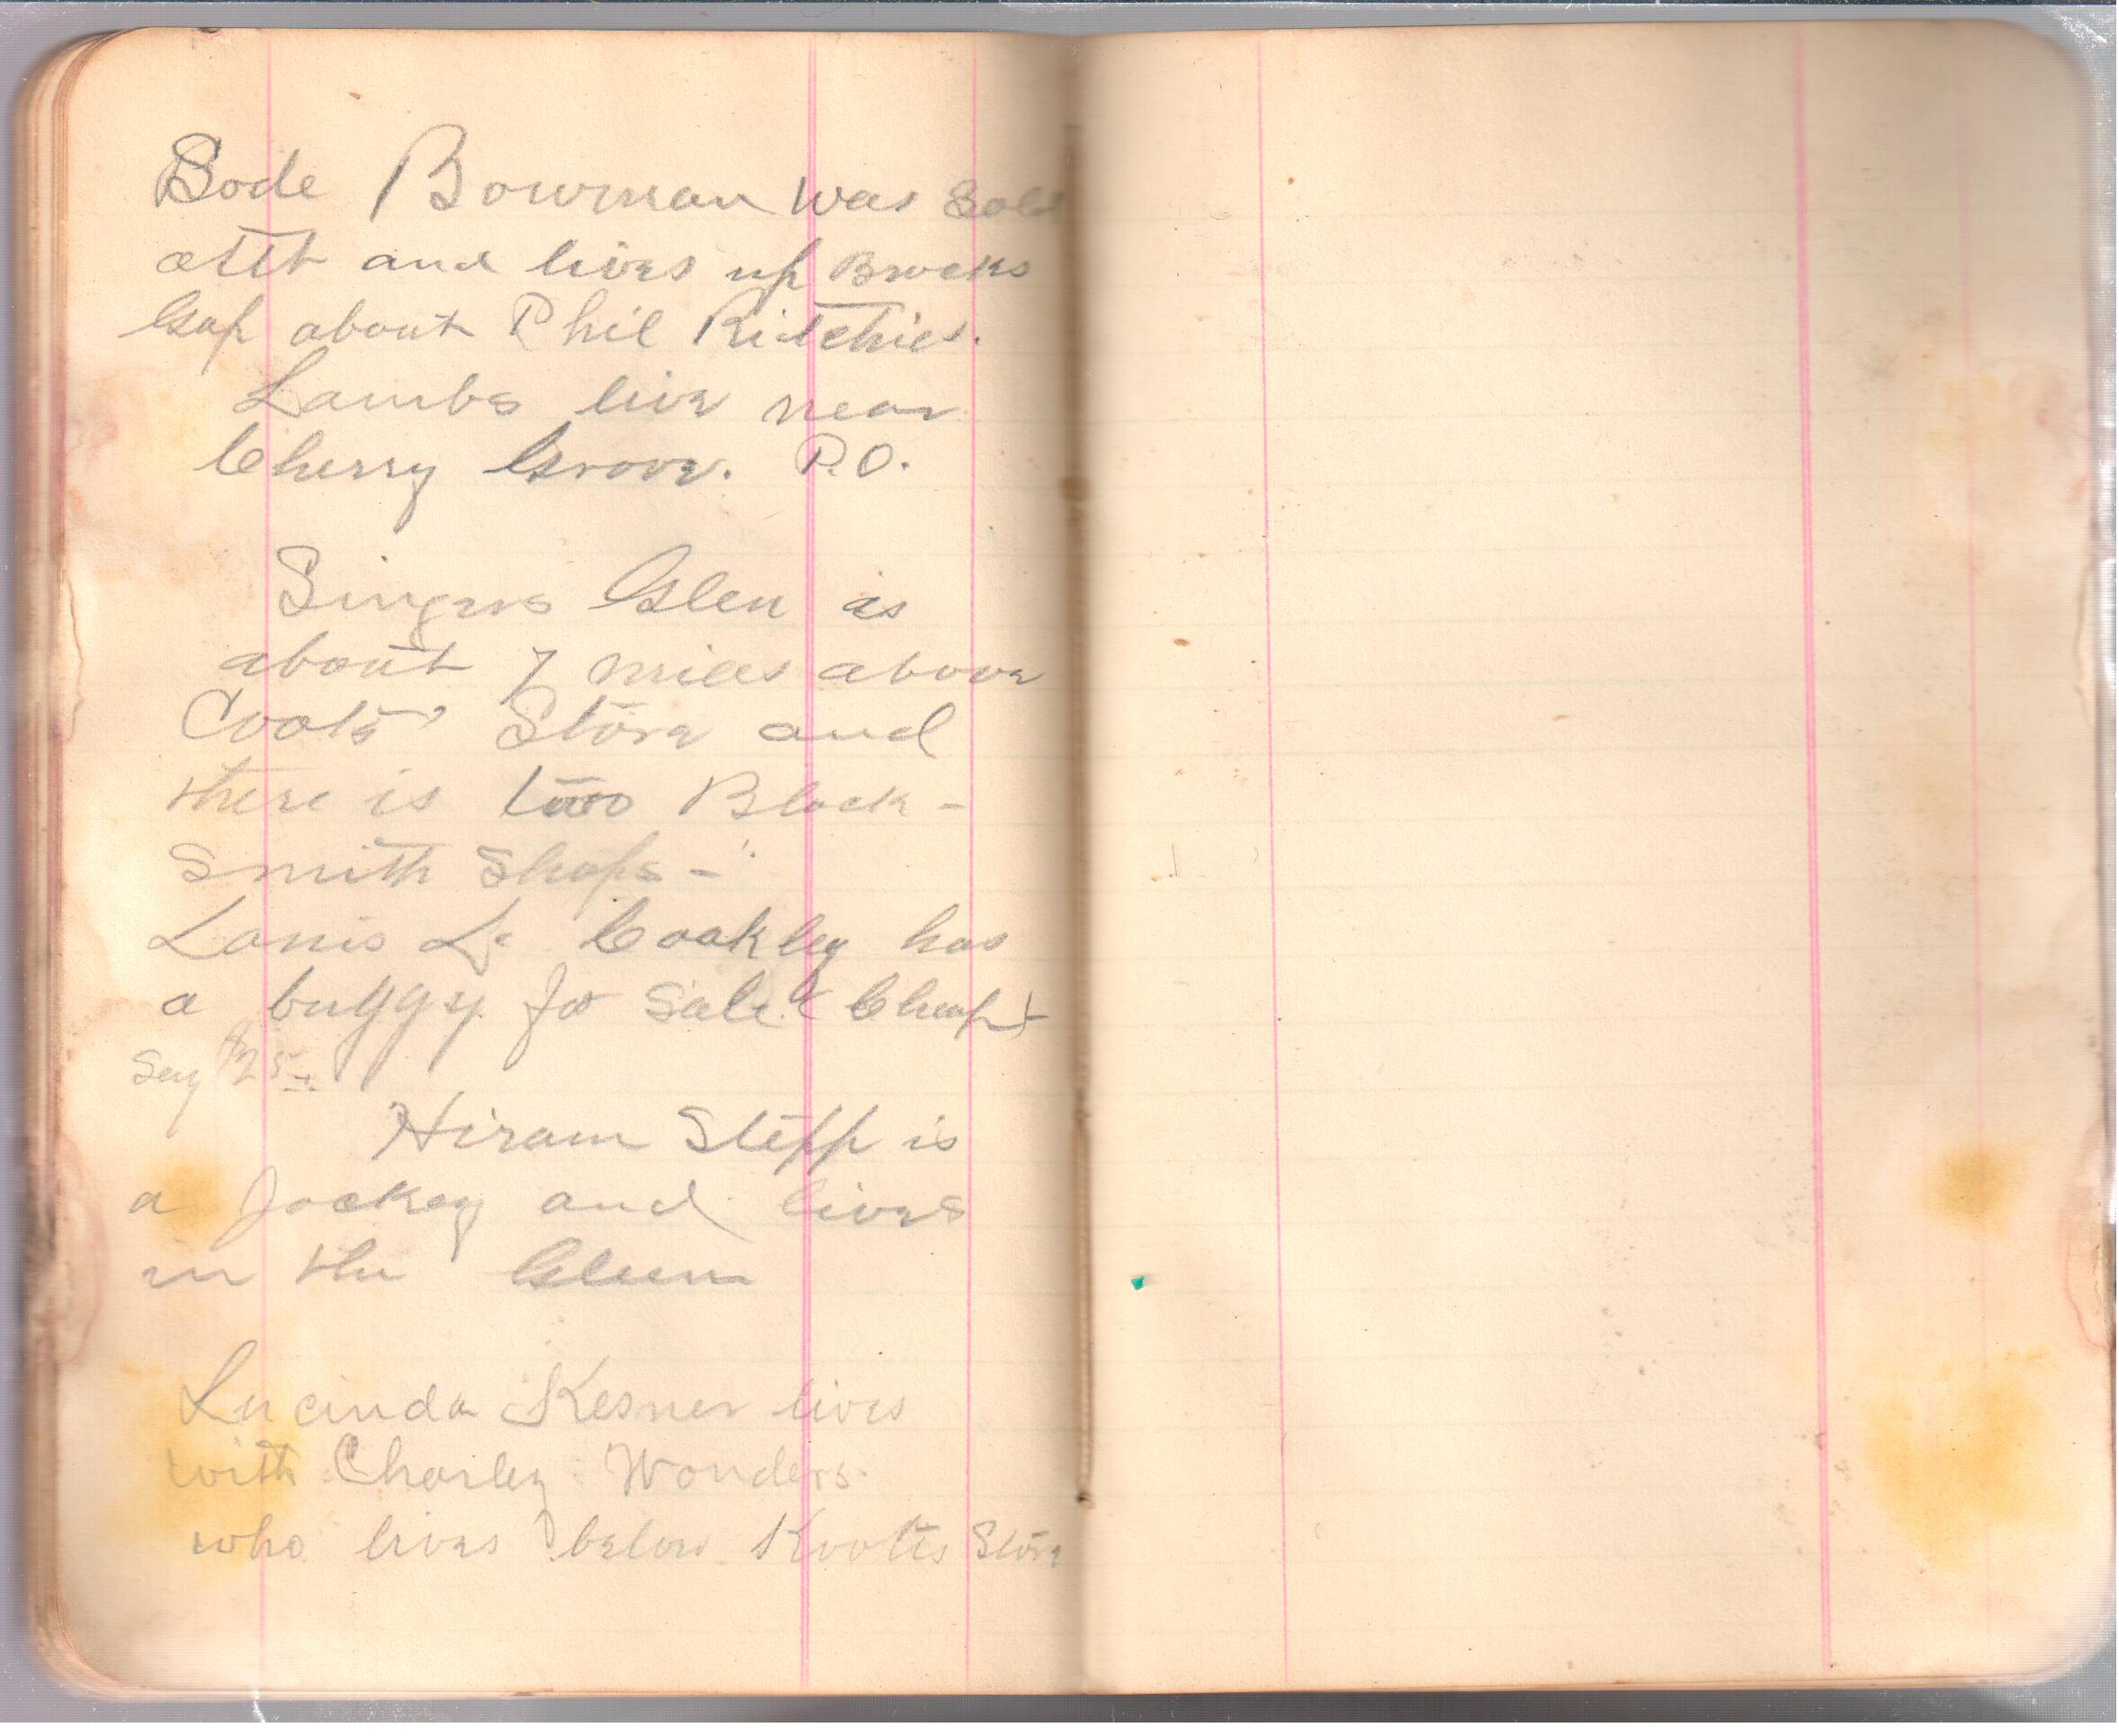 Bode Bowman was Sold
out and lives up Brocks
Gap about Phil Ritchies.
Lambs live near
Cherry Grove. P.O.
Singers Glen is
about 7 miles above
Coots' Store and
there is two Black-
smith Shops -
L. Coakley has
a buggy for Sale (Cheap)
Say $25
Hiram Stepp is
a Jockey and lives
in the Glenn
Lucinda Kesner lives
with Charley Wonders
who lives below Koots Store